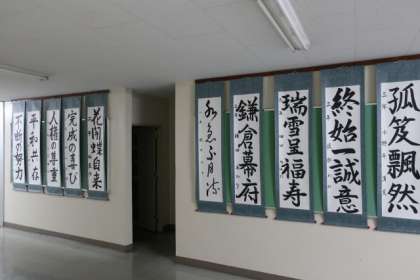 孤笈飄然
終始一誠意
瑞雪呈福寿
鎌倉幕府
水急不月流
花開蝶自来
完成の喜び
人権の尊重
平和共存
不断の努力